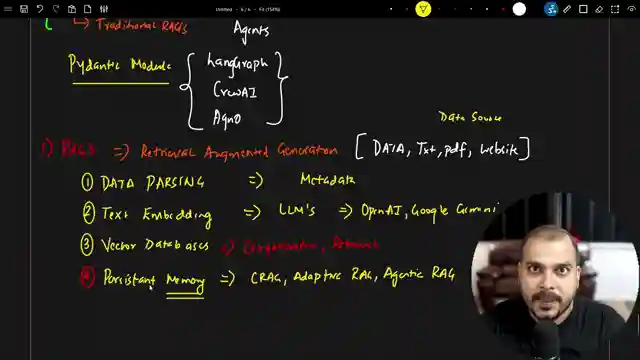 Untitled - 6 / 6 - Fit (154%)
Traditional RAG's
Agents
Pydantic Module
Langgraph
CrewAI
Agno
Data Source
1) RAGS => Retrieval Augmented Generation [DATA, Txt, pdf, website]
① DATA PARSING => Metadata
② Text Embedding => LLM's => OpenAI, Google Gemini
③ Vector Databases =>
④ Persistant Memory => CRAG, Adaptive RAG, Agentic RAG